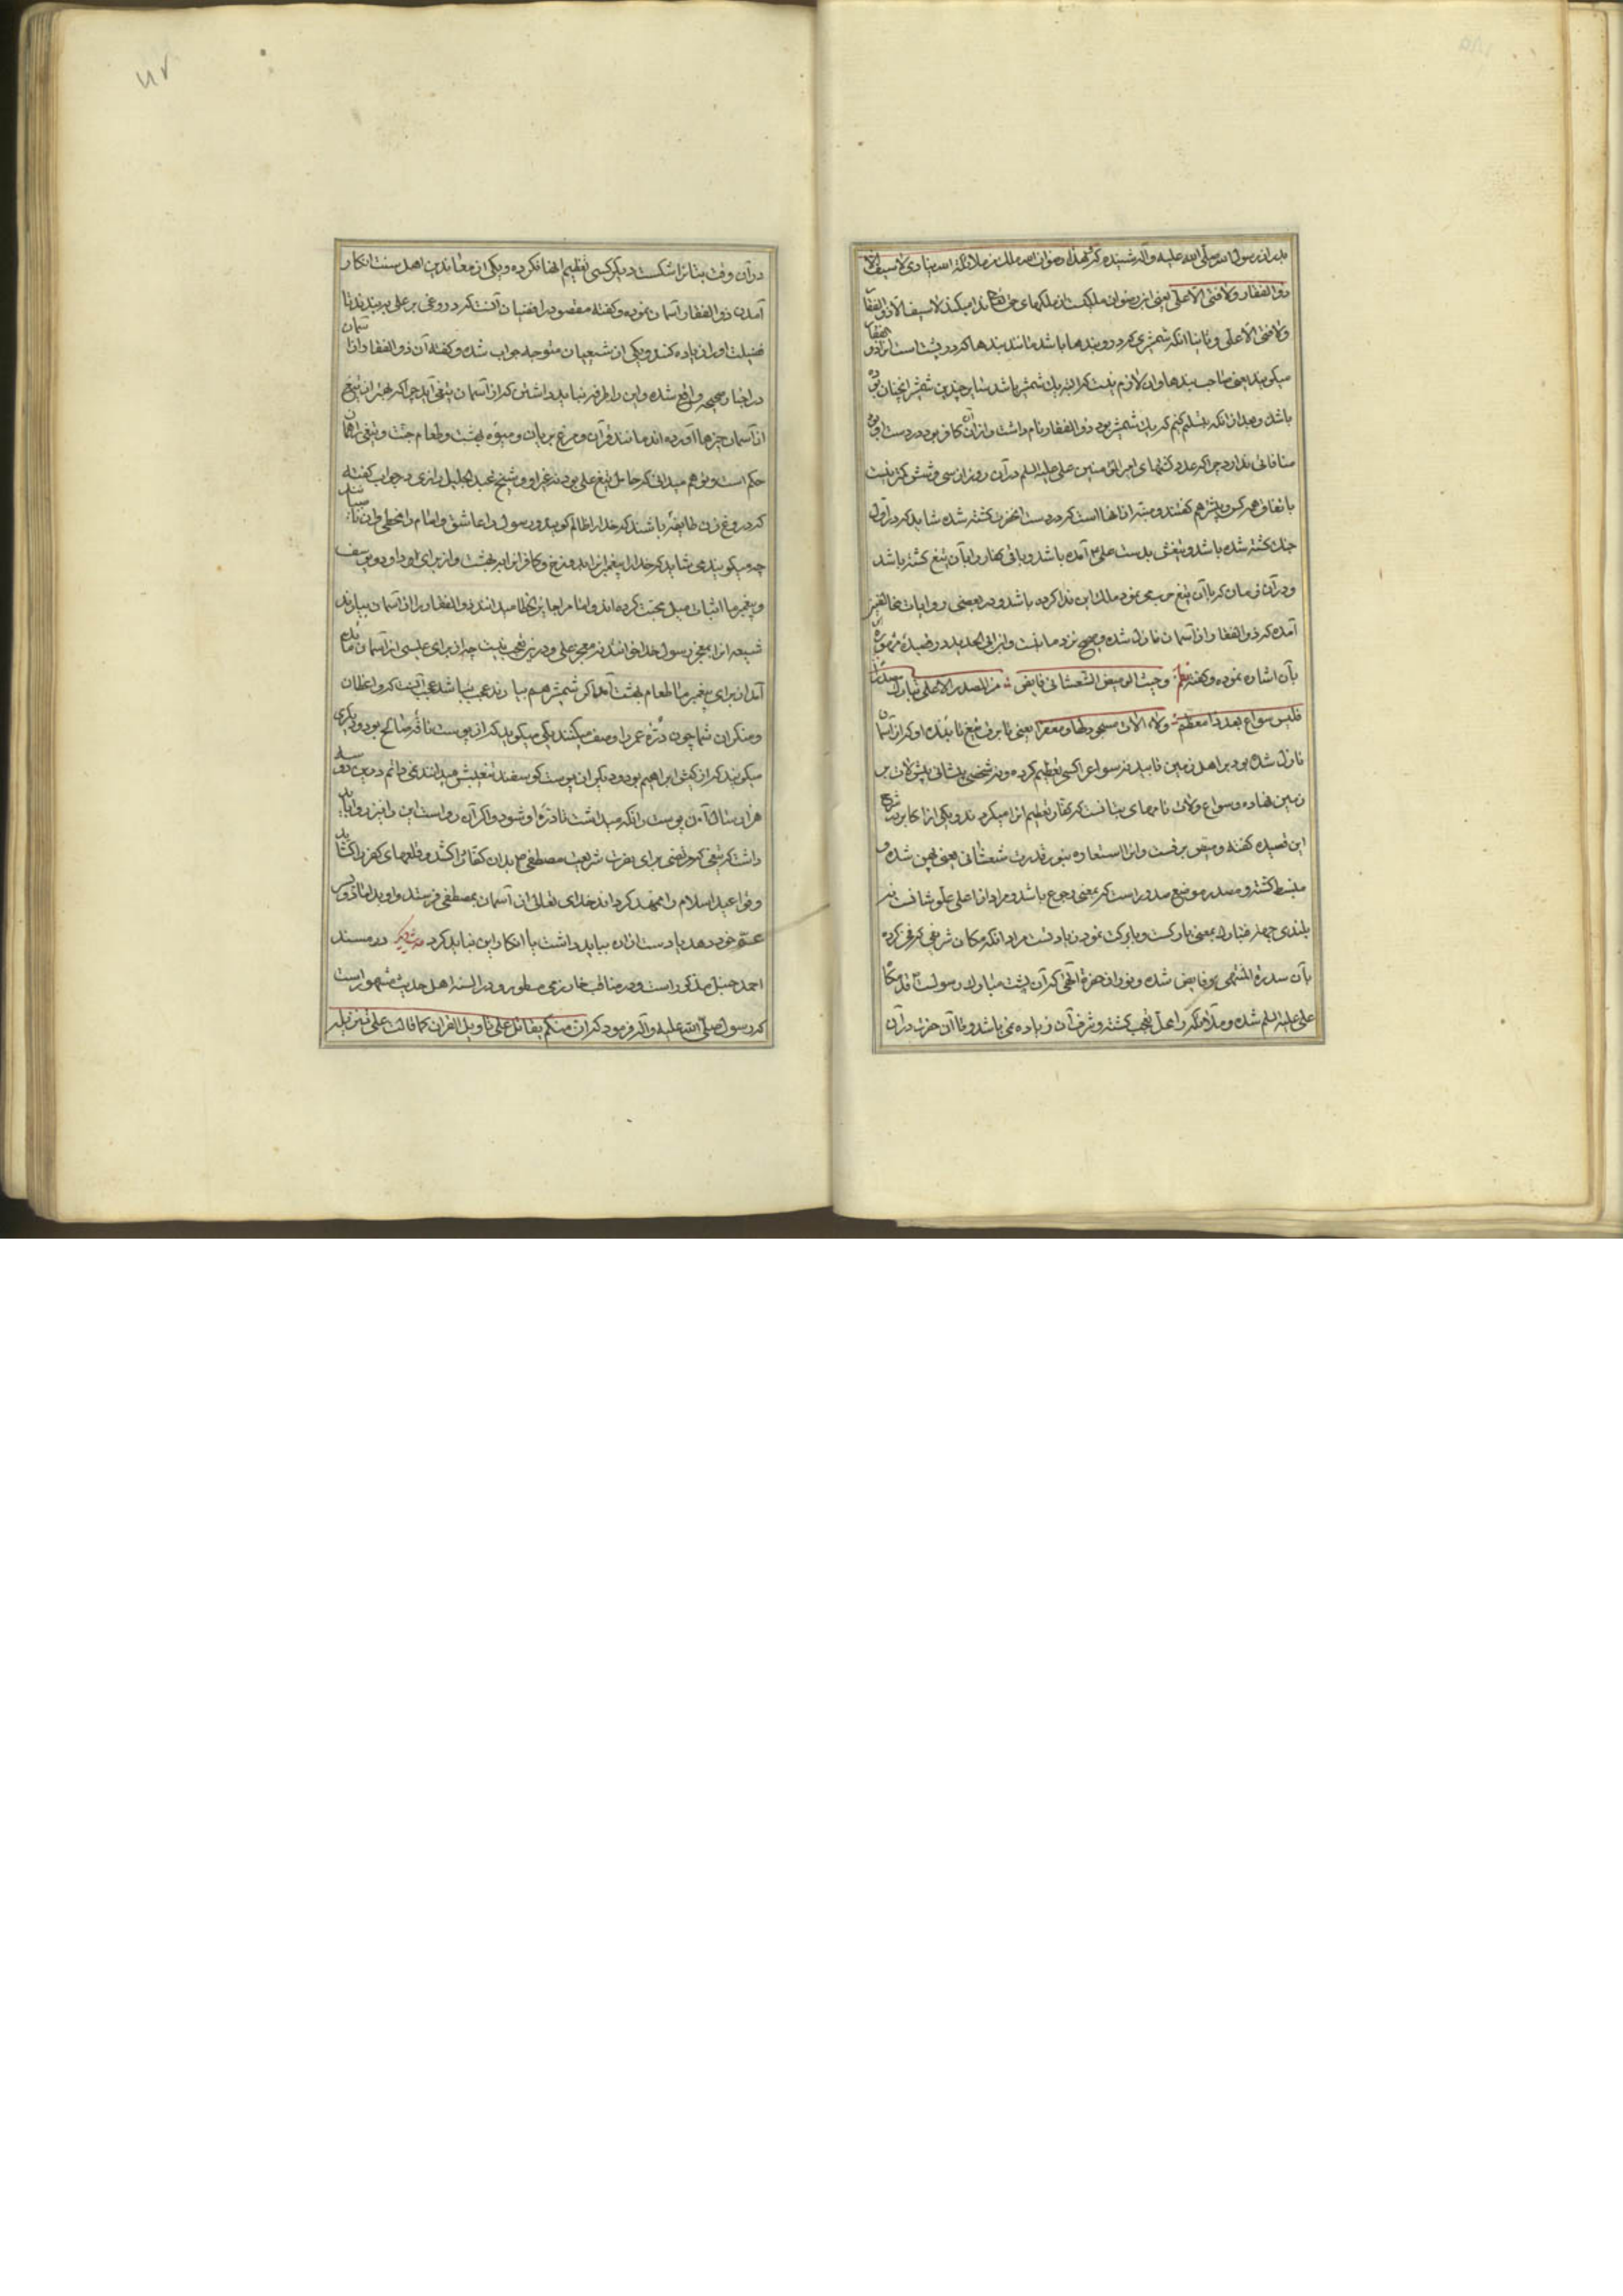 پدران رسول الله صلی الله علیه وآله شنیده که هذا رضوان الله ملك من ملائكة الله ینادی لا سیف الا
ذو الفقار ولا فتی الا علی یعنی این رضوان ملکیست از ملکهای حق ندا میکند لا سیف الا ذو الفقار
ولا فتی الا علی وثانیا انکه شمشیری که درو بندها باشد مانند بندها که در پشت است انرا ذو الفقار
میکویند یعنی صاحب بندها وان لازم نیست که البته یك شمشیر باشد شاید چندین شمشیر انچنان بوده
باشد وبعد از انکه تسلیم کنیم که یك شمشیر بود ذو الفقار نام داشت واز آن کافر بود در دست او بود
منافاتی ندارد چرا که عدد کشتهای امیر المؤمنین علی علیه السلم در آن روز از سی وشش کمتر نیست
باتفاق همه کس وبیشتر هم کفتند ومنبه از انها است که در دست انحضرت کشته شده شاید که در اول
جنك کشته شده باشد وتیغش بدست علی ۴ آمده باشد وباقی کفار را بآن تیغ کشته باشد
ودر آن زمان که بآن تیغ حرب می نمود ملك این ندا کرده باشد ودر بعضی روایات مخالفین
آمده که ذو الفقار از آسمان نازل شده وصحیح نزد ما انست وابن ابی الحدید در قصیدۀ مرموزه
بآن اشاره نموده وکفته نظم وحیث الومیض الشعشعانی فایض من المصدر الاعلی تبارك مصدرا
فلیس سواع بعد ذا معظم ولا اللات مسجودا لها ومعفرا یعنی تا برق تیغ تابندۀ او که از آسمان
نازل شده بود بر اهل زمین تابید نه سواع را کسی تعظیم کرده ونه شخصی پیشانی پیش لات بر
زمین نهاده وسواع ولات نامهای بتانست که کفار تعظیم انها میکردند ویکی از اکابر که شرح
این قصیده کفته ومیض برقست وانرا استعاره بنور قدرت شعشعانی یعنی پهن شده و
منبسط کشته ومصدر موضع صدور است که بمعنی رجوع باشد ومراد از اعلی علو شانست نه
بلندی جهة وتبارك بمعنی بارکست وبا برکت نمودن زیادتست مراد انکه مکان شریفی که فخر کرده
بآن سدرة المنتهی بر فایض شده ونور از حضرة الهی که آن پشت مبارك رسولست قدمکاه
علی علیه السلم شده وملائکه را محل تعجب کشته وشرف آن زیاده می باشد وتا آن حضرت در آن
در آن وقت بتانرا شکست دیکر کسی تعظیم انها نکرده ویکی از معاندین اهل سنت انکار
آمدن ذو الفقار از آسمان نموده وکفته مقصود رافضیان آنست که دروغی بر علی بربندند تا
فضیلت او را زیاده کنند ویکی از شیعیان متوجه جواب شده وکفته آن ذو الفقار را از آسمان
در اخبار صحیحه واقع شده واین را طرفه نباید داشتن که از آسمان تیغی آید چرا که بهتر از تیغ
از آسمان چیزها آورده اند مانند قرآن ومرغ بریان ومیوۀ بهشت وطعام جنت وتیغ را همان
حکم است وتو هم میدانی که حامل تیغ علی بود نه غیر او وشیخ عبد الجلیل رازی در جواب کفته
که دروغ زن طایفۀ باشند که خدا را ظالم کویند ورسول را عاشق وامام را مخطی
چه میکویند می شاید که خدا پیغمبرانرا بدوزخ وکافرانرا بهشت واز برای او داود ویوسف
وپیغمبر ما اثبات میل محبت کرده اند وامامرا جایز الخطا میدانند ذو الفقار را از آسمان بیارند
شیعه انرا معجز رسول خدا خوانند نه معجز علی ودرین تعجب نیست چه از برای عیسی از آسمان مائده
آمد از برای پیغمبر ما طعام بهشت آمد اکر شمشیر هم بیارند عجب نباشد عجب آنست که واعظان
ومنکران شما چون درّۀ عمر را وصف میکنند یکی میکوید که از پوست ناقۀ صالح بود ودیکری
میکویند که از کبش ابراهیم بود ودیکری از پوست کوسفند شعیبش میدانند نمی دانم درین دو سه
هزار سال آن پوست را نکه میداشت تا درّۀ او شود واکر آن رواست این را نیز روا باید
داشت که تیغی که مرتضی برای نصرت شریعت مصطفی ۴ بدان کفار را کشد وقلعهای کفر را کشاید
وقواعد اسلام را ممهد کرداند خدای تعالی از آسمان بمصطفی فرستد واو بداماد وپسر
عم خود دهد باید داشت باید انکار این نباید کرد حدیث دیکر در مسند
احمد حنبل مذکور است ودر مناقب خوارزمی مسطور ودر السنۀ اهل حدیث مشهور است
که رسول صلی الله علیه وآله فرمود که ان منکم یقاتل علی تاویل القرآن کما قاتلت علی تنزیله